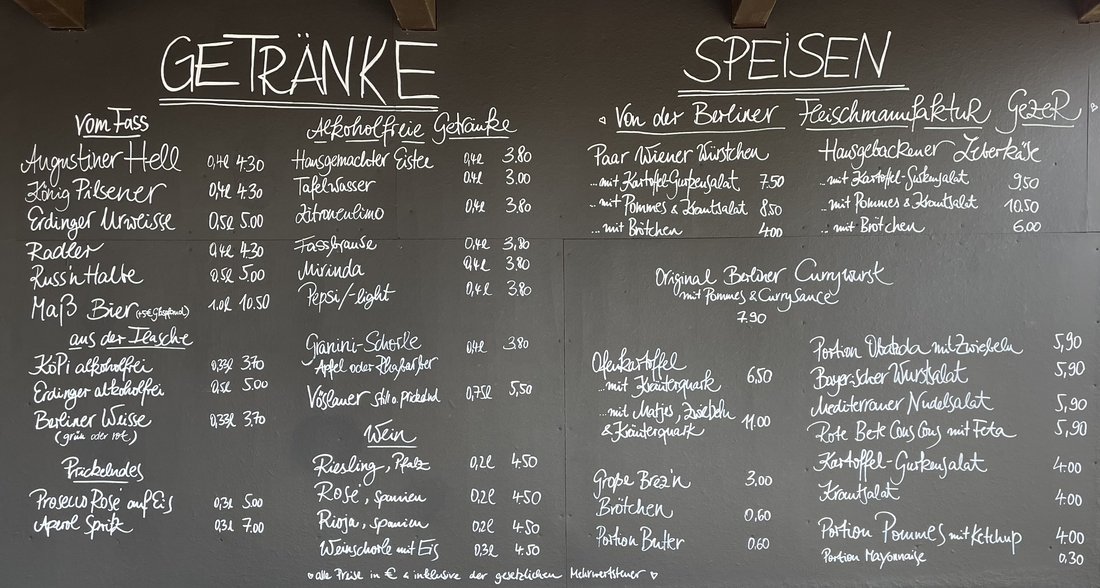 GETRÄNKE
Vom Fass
Augustiner Hell 0,4l 4.30
König Pilsener 0,4l 4.30
Erdinger Urweisse 0,5l 5.00
Radler 0,4l 4.30
Russ'n Halbe 0,5l 5.00
Maß Bier 1.0l 10.50
aus der Flasche
KöPi alkoholfrei 0,33l 3.70
Erdinger alkoholfrei 0,5l 5.00
Berliner Weisse 0,33l 3.70
(grün oder rot)
Prickelndes
Prosecco Rosé auf Eis 0,3l 5.00
Aperol Spritz 0,3l 7.00
Alkoholfreie Getränke
Hausgemachter Eistee 0,4l 3.80
Tafelwasser 0.4l 3.00
Zitronenlimo 0,4l 3,80
Fassbrause 0,4l 3,80
Mirinda 0,4l 3.80
Pepsi/-light 0,4l 3.80
Granini-Schorle 0,4l 3,80
Apfel oder Rhabarber
Vöslauer still o. prickelnd 0,75l 5,50
Wein
Riesling, Pfalz 0,2l 4.50
Rosé, Spanien 0,2l 4.50
Rioja, Spanien 0,2l 4.50
Weinschorle mit Eis 0,3l 4.50
alle Preise in € & inklusive der gesetzlichen Mehrwertsteuer
SPEISEN
Von der Berliner Fleischmanufaktur GEZER
Paar Wiener Würstchen
...mit Kartoffel-Gurkensalat 7.50
...mit Pommes & Krautsalat 8.50
...mit Brötchen 4.00
Hausgebackener Leberkäse
...mit Kartoffel-Gurkensalat 9.50
...mit Pommes & Krautsalat 10.50
...mit Brötchen 6.00
Original Berliner Currywurst
mit Pommes & Currysauce
7.90
Ofenkartoffel
...mit Kräuterquark 6,50
...mit Matjes, Zwiebeln
& Kräuterquark 11.00
Große Brez'n 3,00
Brötchen 0,60
Portion Butter 0.60
Portion Obatzda mit Zwiebeln 5,90
Bayerischer Wurstsalat 5,90
Mediterraner Nudelsalat 5,90
Rote Bete Cous Cous mit Feta 5,90
Kartoffel-Gurkensalat 4.00
Krautsalat 4.00
Portion Pommes mit Ketchup 4.00
Portion Mayonnaise 0,30